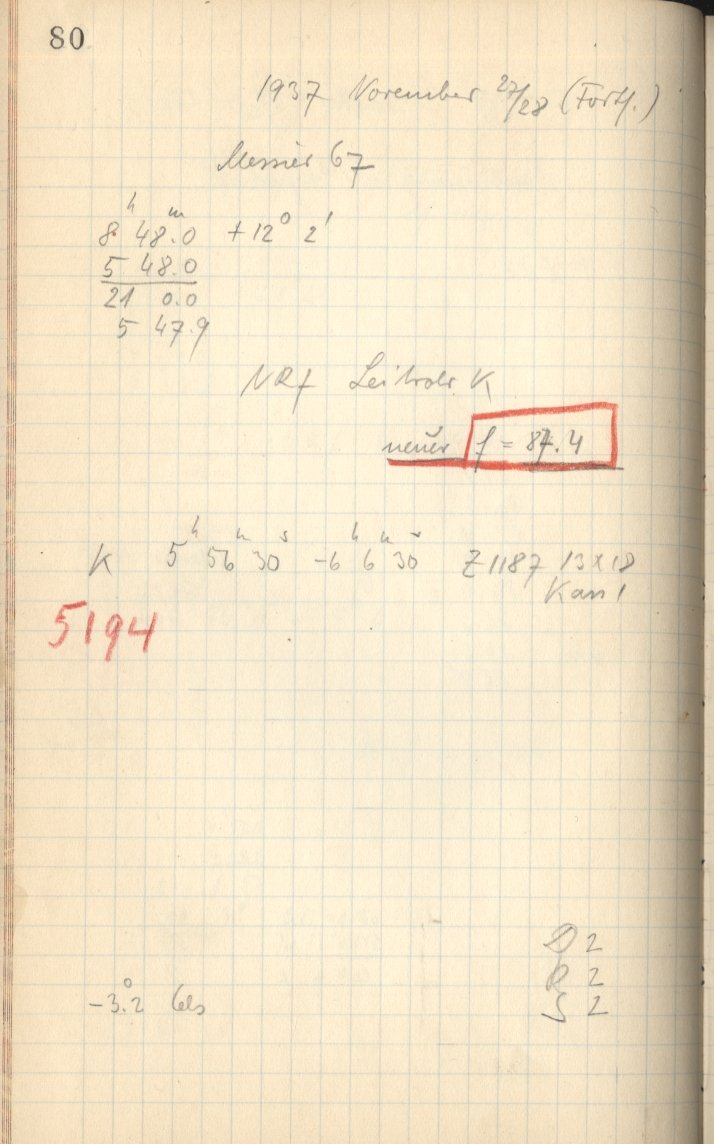 80
1937 November 27/28 (Forts.)
Messier 67
8h 48m.0 +12° 2'
5 48.0
21 0.0
5 47.9
K
neuer f = 87.4
K 5h 56m 30s -6h 6m 30s Z 1187 13x18
5194
D 2
R 2
-3°.2 Cels
S 2